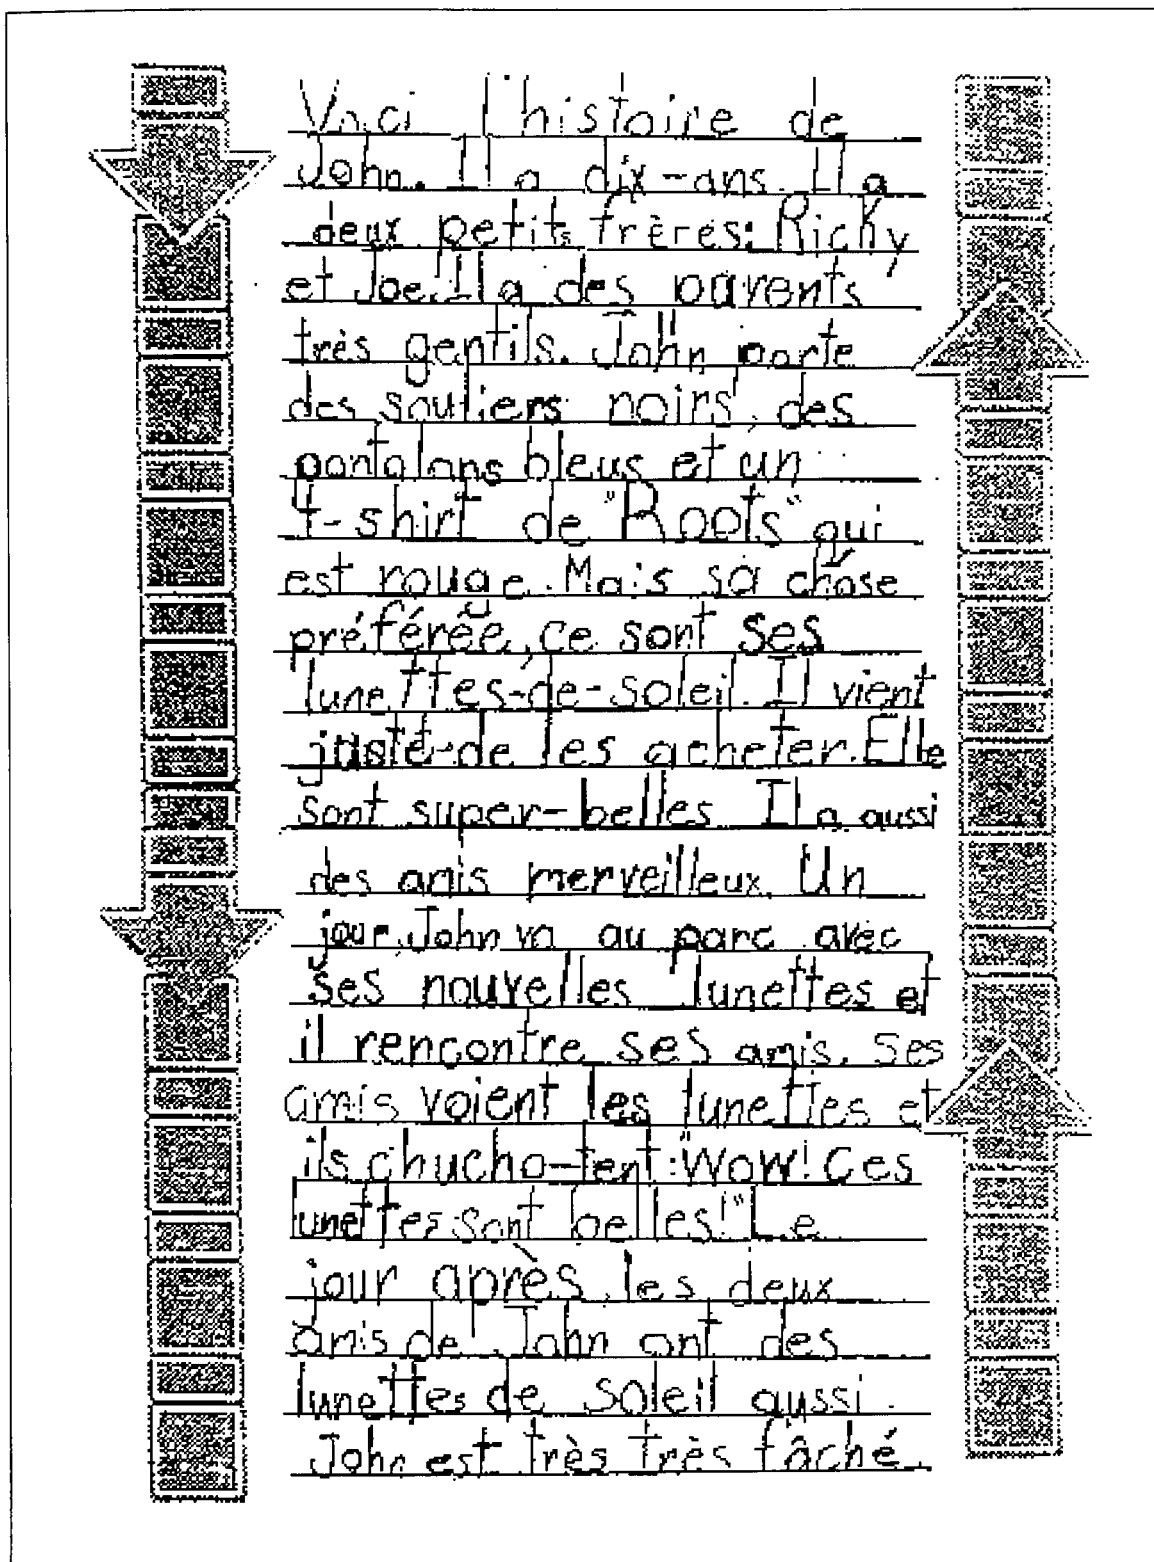 Voici l'histoire de
John. Il a dix-ans. Il a
deux petits frères: Ricky
et Joe. Il a des parents
très gentils. John porte
des souliers noirs, des
pantalons bleus et un
T-shirt de "Roots" qui
est rouge. Mais sa chose
préférée, ce sont ses
lunettes-de-soleil. Il vient
juste-de les acheter. Elle
sont super-belles. Il a aussi
des amis merveilleux. Un
jour, John va au parc avec
ses nouvelles lunettes et
il rencontre ses amis. Ses
amis voient les lunettes et
ils chucho-tent: "Wow! Ces
lunettes sont belles!" Le
jour après, les deux
amis de John ont des
lunettes de soleil aussi.
John est très très fâché.